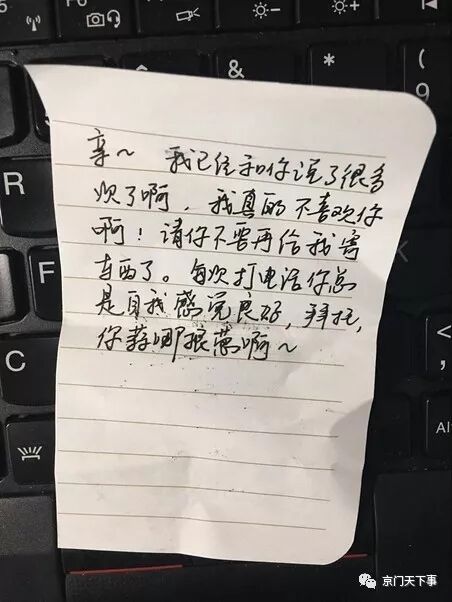 亲～ 我已经和你说了很多
次了啊，我真的不喜欢你
啊！请你不要再给我寄
东西了。每次打电话你总
是自我感觉良好，拜托，
你蒜哪根葱啊～
R
F
C
&
*
(
9
Alt
京门天下事